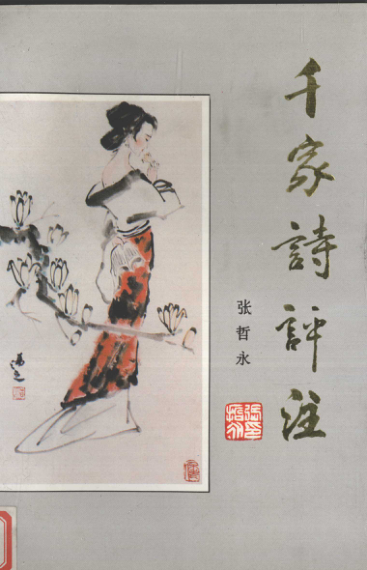 千家詩評注
张哲永